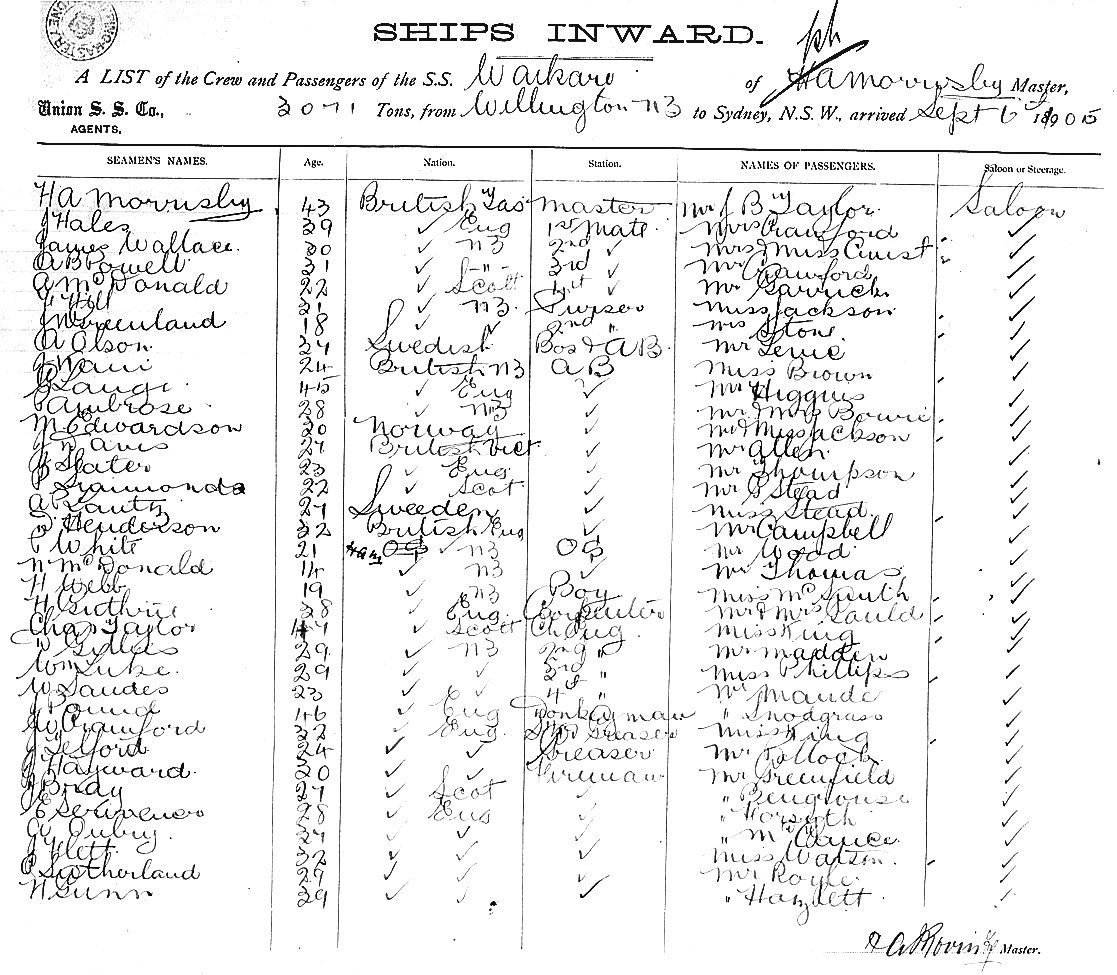 SHIPS INWARD.
A LIST of the Crew and Passengers of the S.S. Waikare of HA Morrisby Master,
Union S. S. Co., AGENTS, 3071 Tons, from Wellington NZ to Sydney, N.S.W., arrived Sept 6 1905
SEAMEN'S NAMES. Age. Nation. Station. NAMES OF PASSENGERS. Saloon or Steerage.
HA Morrisby 43 British Tas Master Mr J B Taylor Saloon
J Hales 39 ✓ Eng 1st Mate Mrs Crawford ✓
James Wallace 30 ✓ NZ 2nd ✓ Mrs & Miss ✓
A B Powell 31 ✓ " 3rd ✓ Mr Crawford ✓
A McDonald 22 ✓ Scott 4th ✓ Mr Garrick ✓
J Hill 31 ✓ NZ Purser Miss Jackson ✓
Greenland 18 ✓ ✓ 2nd " Mrs Stone ✓
A Olson 34 Swedish Bos & AB Mr ✓
J 24 British NZ AB Miss Brown ✓
45 ✓ Eng ✓ Mr Higgins ✓
Ambrose 28 ✓ NZ ✓ Mr & Mrs Bowie ✓
M Edwardson 30 Norway ✓ Mr & Miss Jackson ✓
J Davis 27 British Vict ✓ Mr Allen ✓
J Slater 23 ✓ Eng ✓ Mr Thompson ✓
22 ✓ Scot ✓ Mr Stead ✓
A 27 Sweeden ✓ Miss Stead ✓
Henderson 32 British Eng ✓ Mr Campbell ✓
P White 21 ✓ NZ OS Mr Wood ✓
N McDonald ✓ NZ ✓ Mr Thomas ✓
H Webb 19 ✓ NZ Boy Miss ✓
H Guthrie 38 Eng Carpenter Mr & Mrs Gauld ✓
Chas Taylor 47 ✓ Scott Ch Eng Miss King ✓
29 ✓ NZ 2nd " Mr Madden ✓
Wm Luke 29 ✓ ✓ 3rd " Miss Phillips ✓
W 23 ✓ ✓ 4th " Mr Maude ✓
J Pound 46 ✓ Eng Donkeyman " Snodgrass ✓
W Crawford 32 ✓ Eng Greaser Miss King ✓
J Telford 24 ✓ ✓ Greaser Mr Pollock ✓
J Hayward 20 ✓ ✓ Fireman Mr Greenfield ✓
J Bray 27 ✓ Scot ✓ " ✓
E Scrivener 28 ✓ Eng ✓ " Forsyth ✓
Aubry 34 ✓ ✓ ✓ " ✓
J Flett 32 ✓ ✓ ✓ Miss Watson ✓
Sutherland 29 ✓ ✓ ✓ Mr Royle ✓
Gunn 29 ✓ ✓ ✓ " Hazlett ✓
Master.